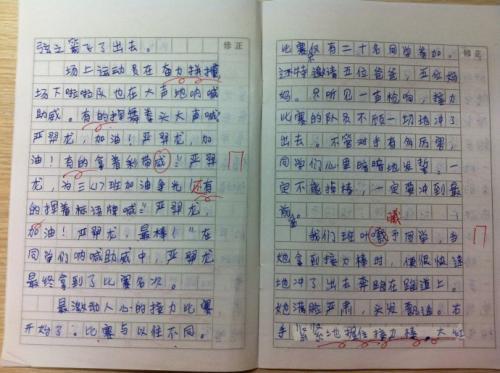 修正
弦之箭飞了出去。
场上运动员在奋力拼搏,
场下啦啦队也在大声地呐喊
助威。有的握拳头大声喊
严羿龙,加油!严羿龙,加
油!有的拿着彩旗喊:“严羿
龙,为三(4)班加油争光,还有
的捏着标语牌喊:“严羿龙,
加油!严羿龙,最棒!”在
同学们呐喊助威中,严羿龙
最终拿到了比赛名次。
最激动人心的接力比赛
开始了。比赛与以往不同。
修正
比赛仅有二十名同学参加。
还特邀请五位爸爸,五位妈
妈。只听见一声枪响,接力
比赛的队员不顾一切地冲了
出去。不管对手有多厉害,
同学们心里暗暗地发誓,一
定不能掉棒,一定要冲到最
前面。
我们班叶曦于同学,当
她拿到接力棒时,便很快速
地冲了出去奔跑在跑道上。
她满脸严肃,头发飘逸。右
手紧紧地握住接力棒,大红